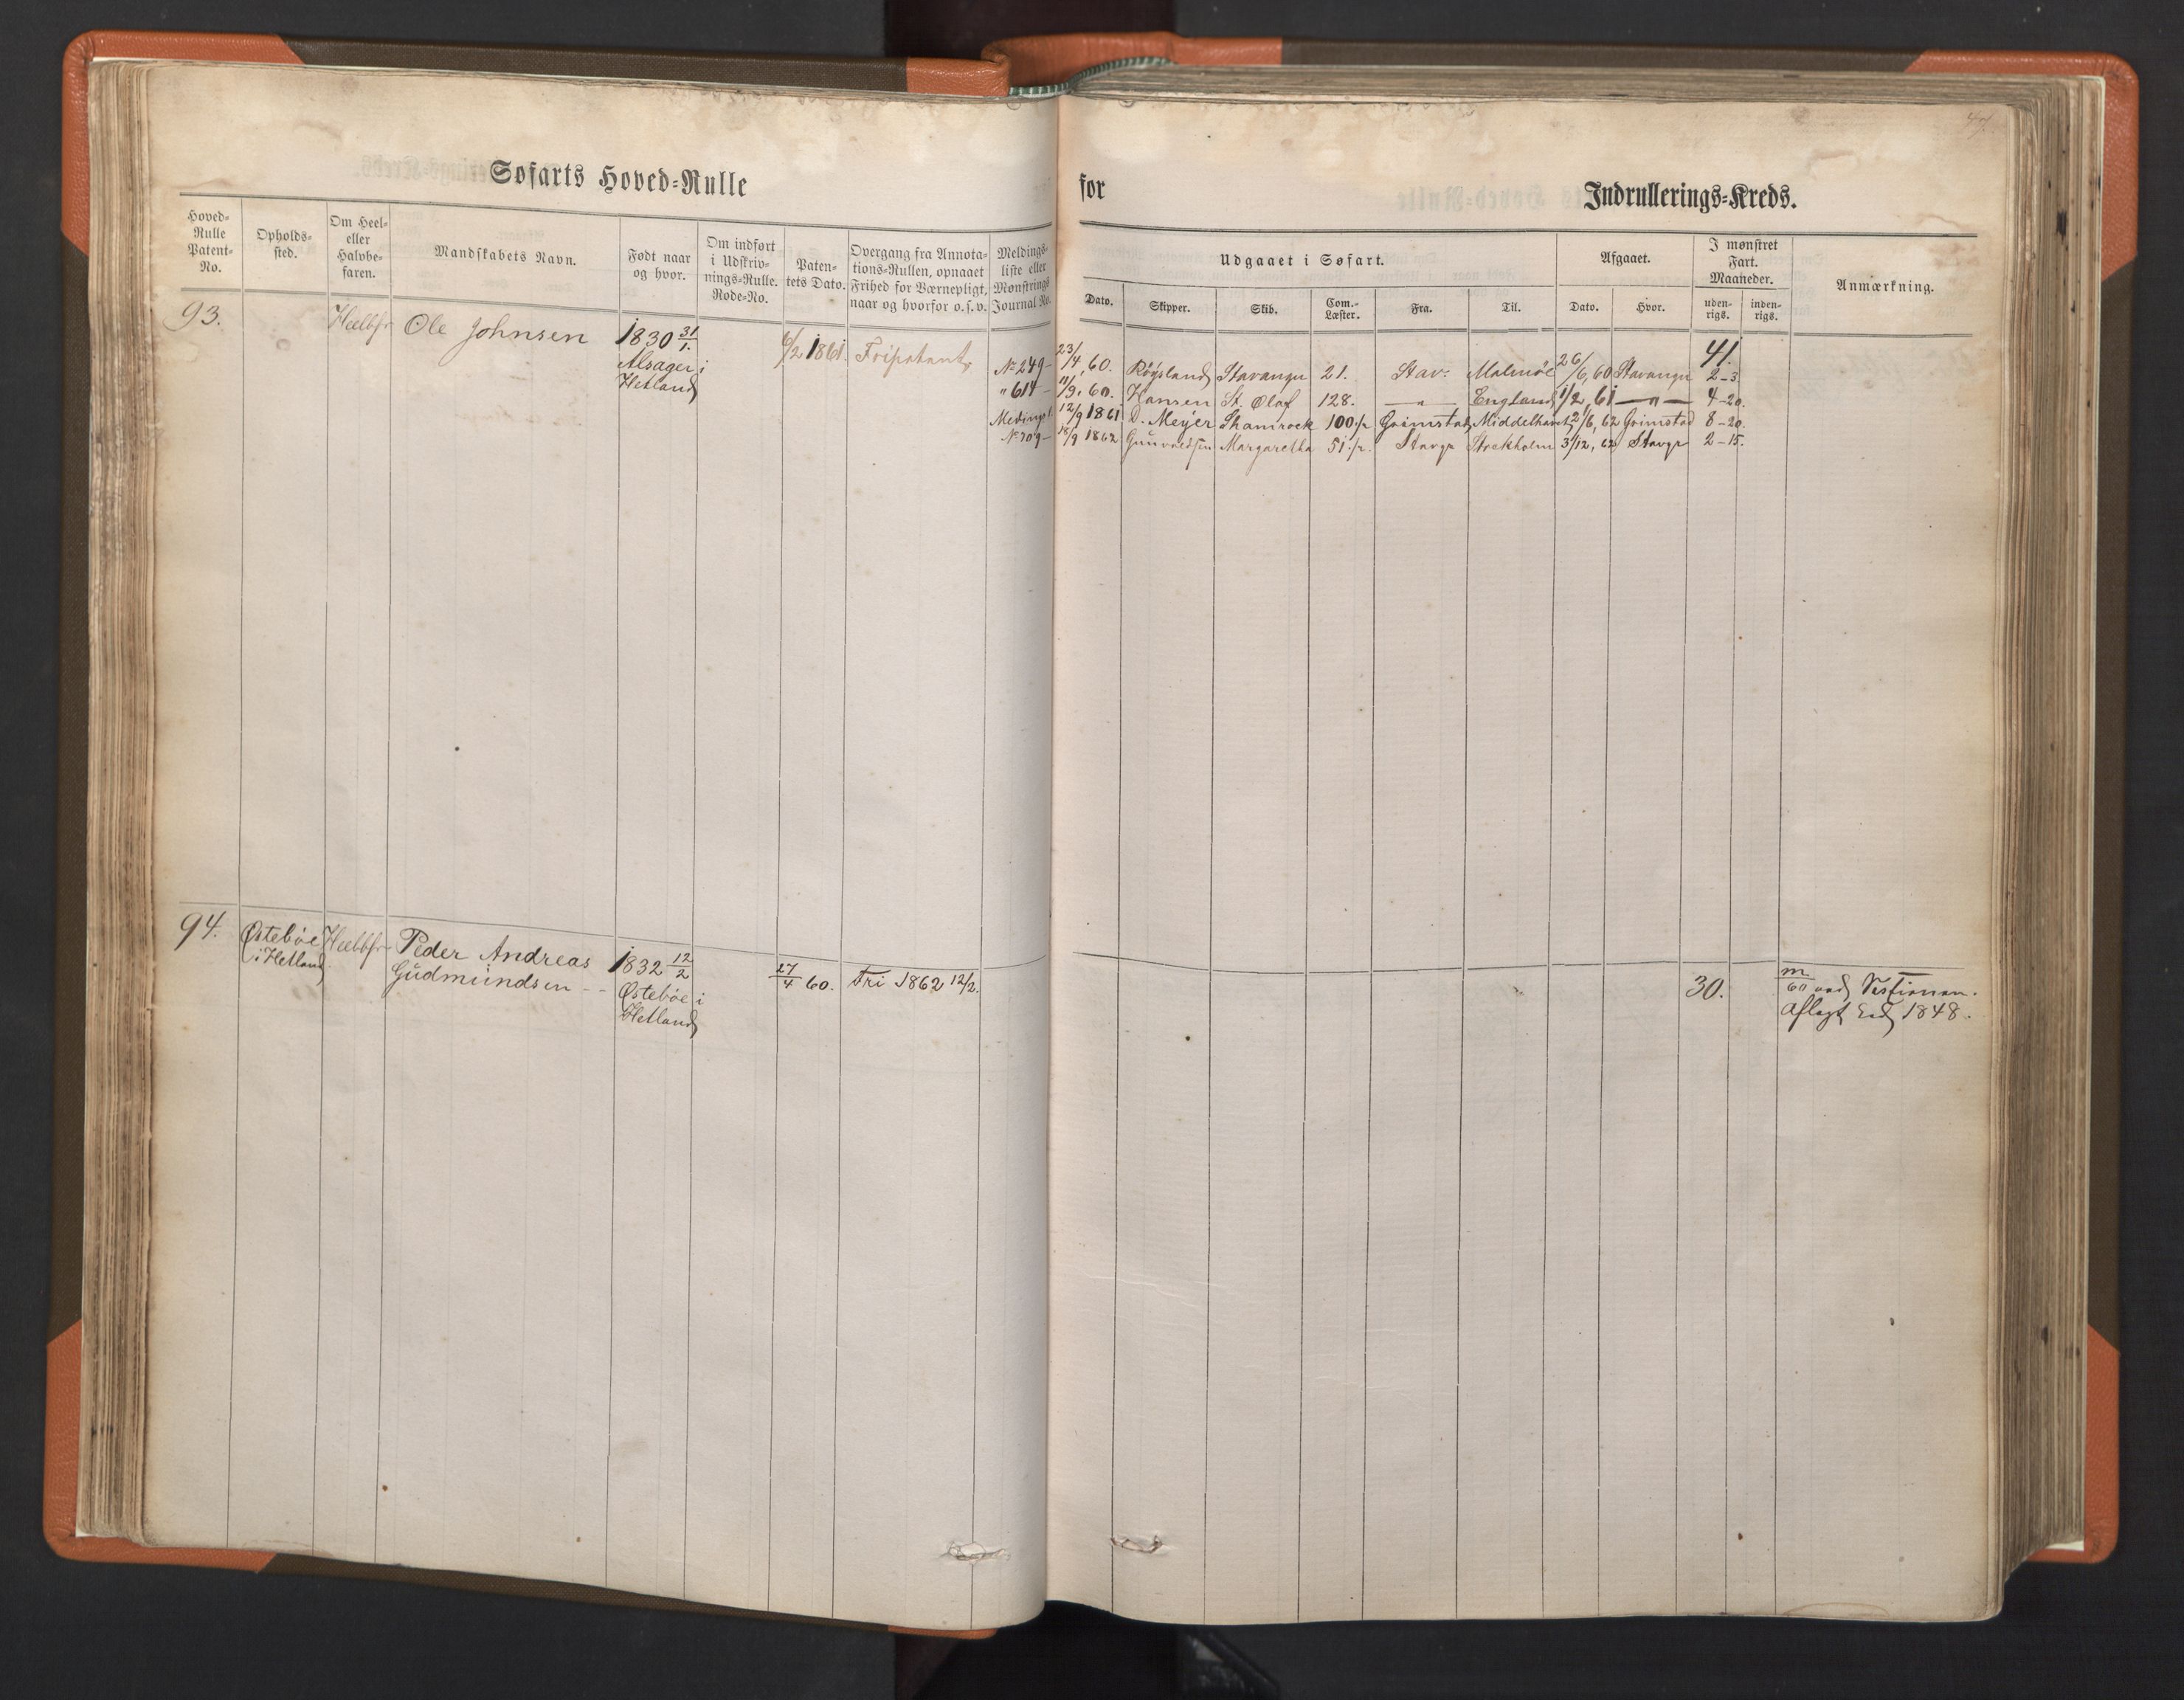 47.
Søfarts Hoved-Rulle for Indrullerings-Kreds.
Hoved-Rulle Patent-No.
Opholds-sted.
Om Heel- eller Halvbe-faren.
Mandskabets Navn.
Født naar og hvor.
Om indført i Udskriv-nings-Rulle. Rode-No.
Paten-tets Dato.
Overgang fra Annota-tions-Rullen, opnaaet Frihed for Værnepligt, naar og hvorfor o.s.v.
Meldings-liste eller Mønstrings Journal No.
Udgaaet i Søfart.
Dato. Skipper. Skib. Com.-Læster. Fra. Til.
Afgaaet.
Dato. Hvor.
I mønstret Fart. Maaneder.
uden-rigs. inden-rigs.
Anmærkning.
93. Heelbfr Ole Johnsen 1830 31/1. 6/2 1861. Fripatent
Alsager i
Hetland
41.
No 249 23/4, 60. Röysland Stavanger 21. Stav: Malmöe 26/6, 60 Stavanger 2-3
" 614 11/9, 60. Hansen St. Olaf 128. — " — England 1/2, 61 — " — 4-20.
Medings l. 12/9 1861 D. Meyer Shamrock 100 1/2 Grimstad Middelhavet 2/6, 62 Grimstad 8-20.
No 709 18/9 1862 Gunvaldsen Margaretha 51 1/2. Stavgr Stockholm 3/12, 62 Stavgr 2-15.
94. Østebøe Heelbfr Peder Andreas 1832 12/2 27/4 60. Fri 1862 12/2. 30.
i Hetland Gudmundsen -- Østebøe i
Hetland
60 Aflagt Eed 1848.